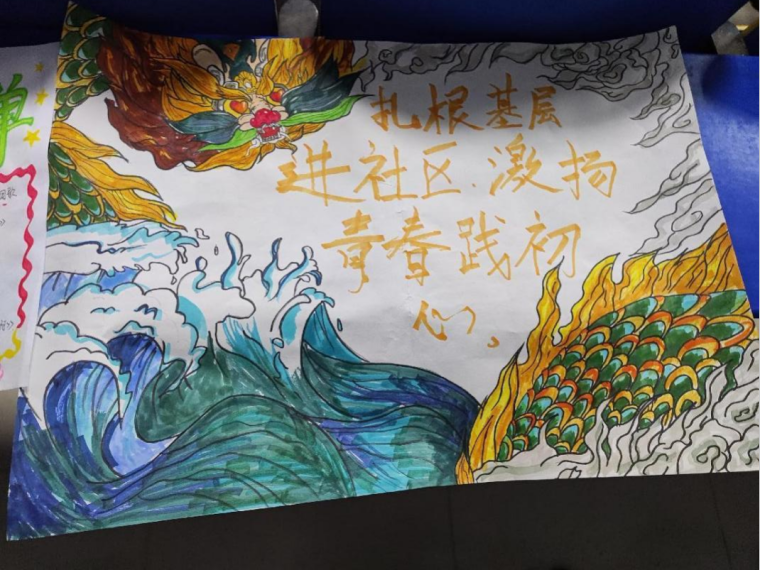 扎根基层
进社区.激扬
青春践初
心。
单